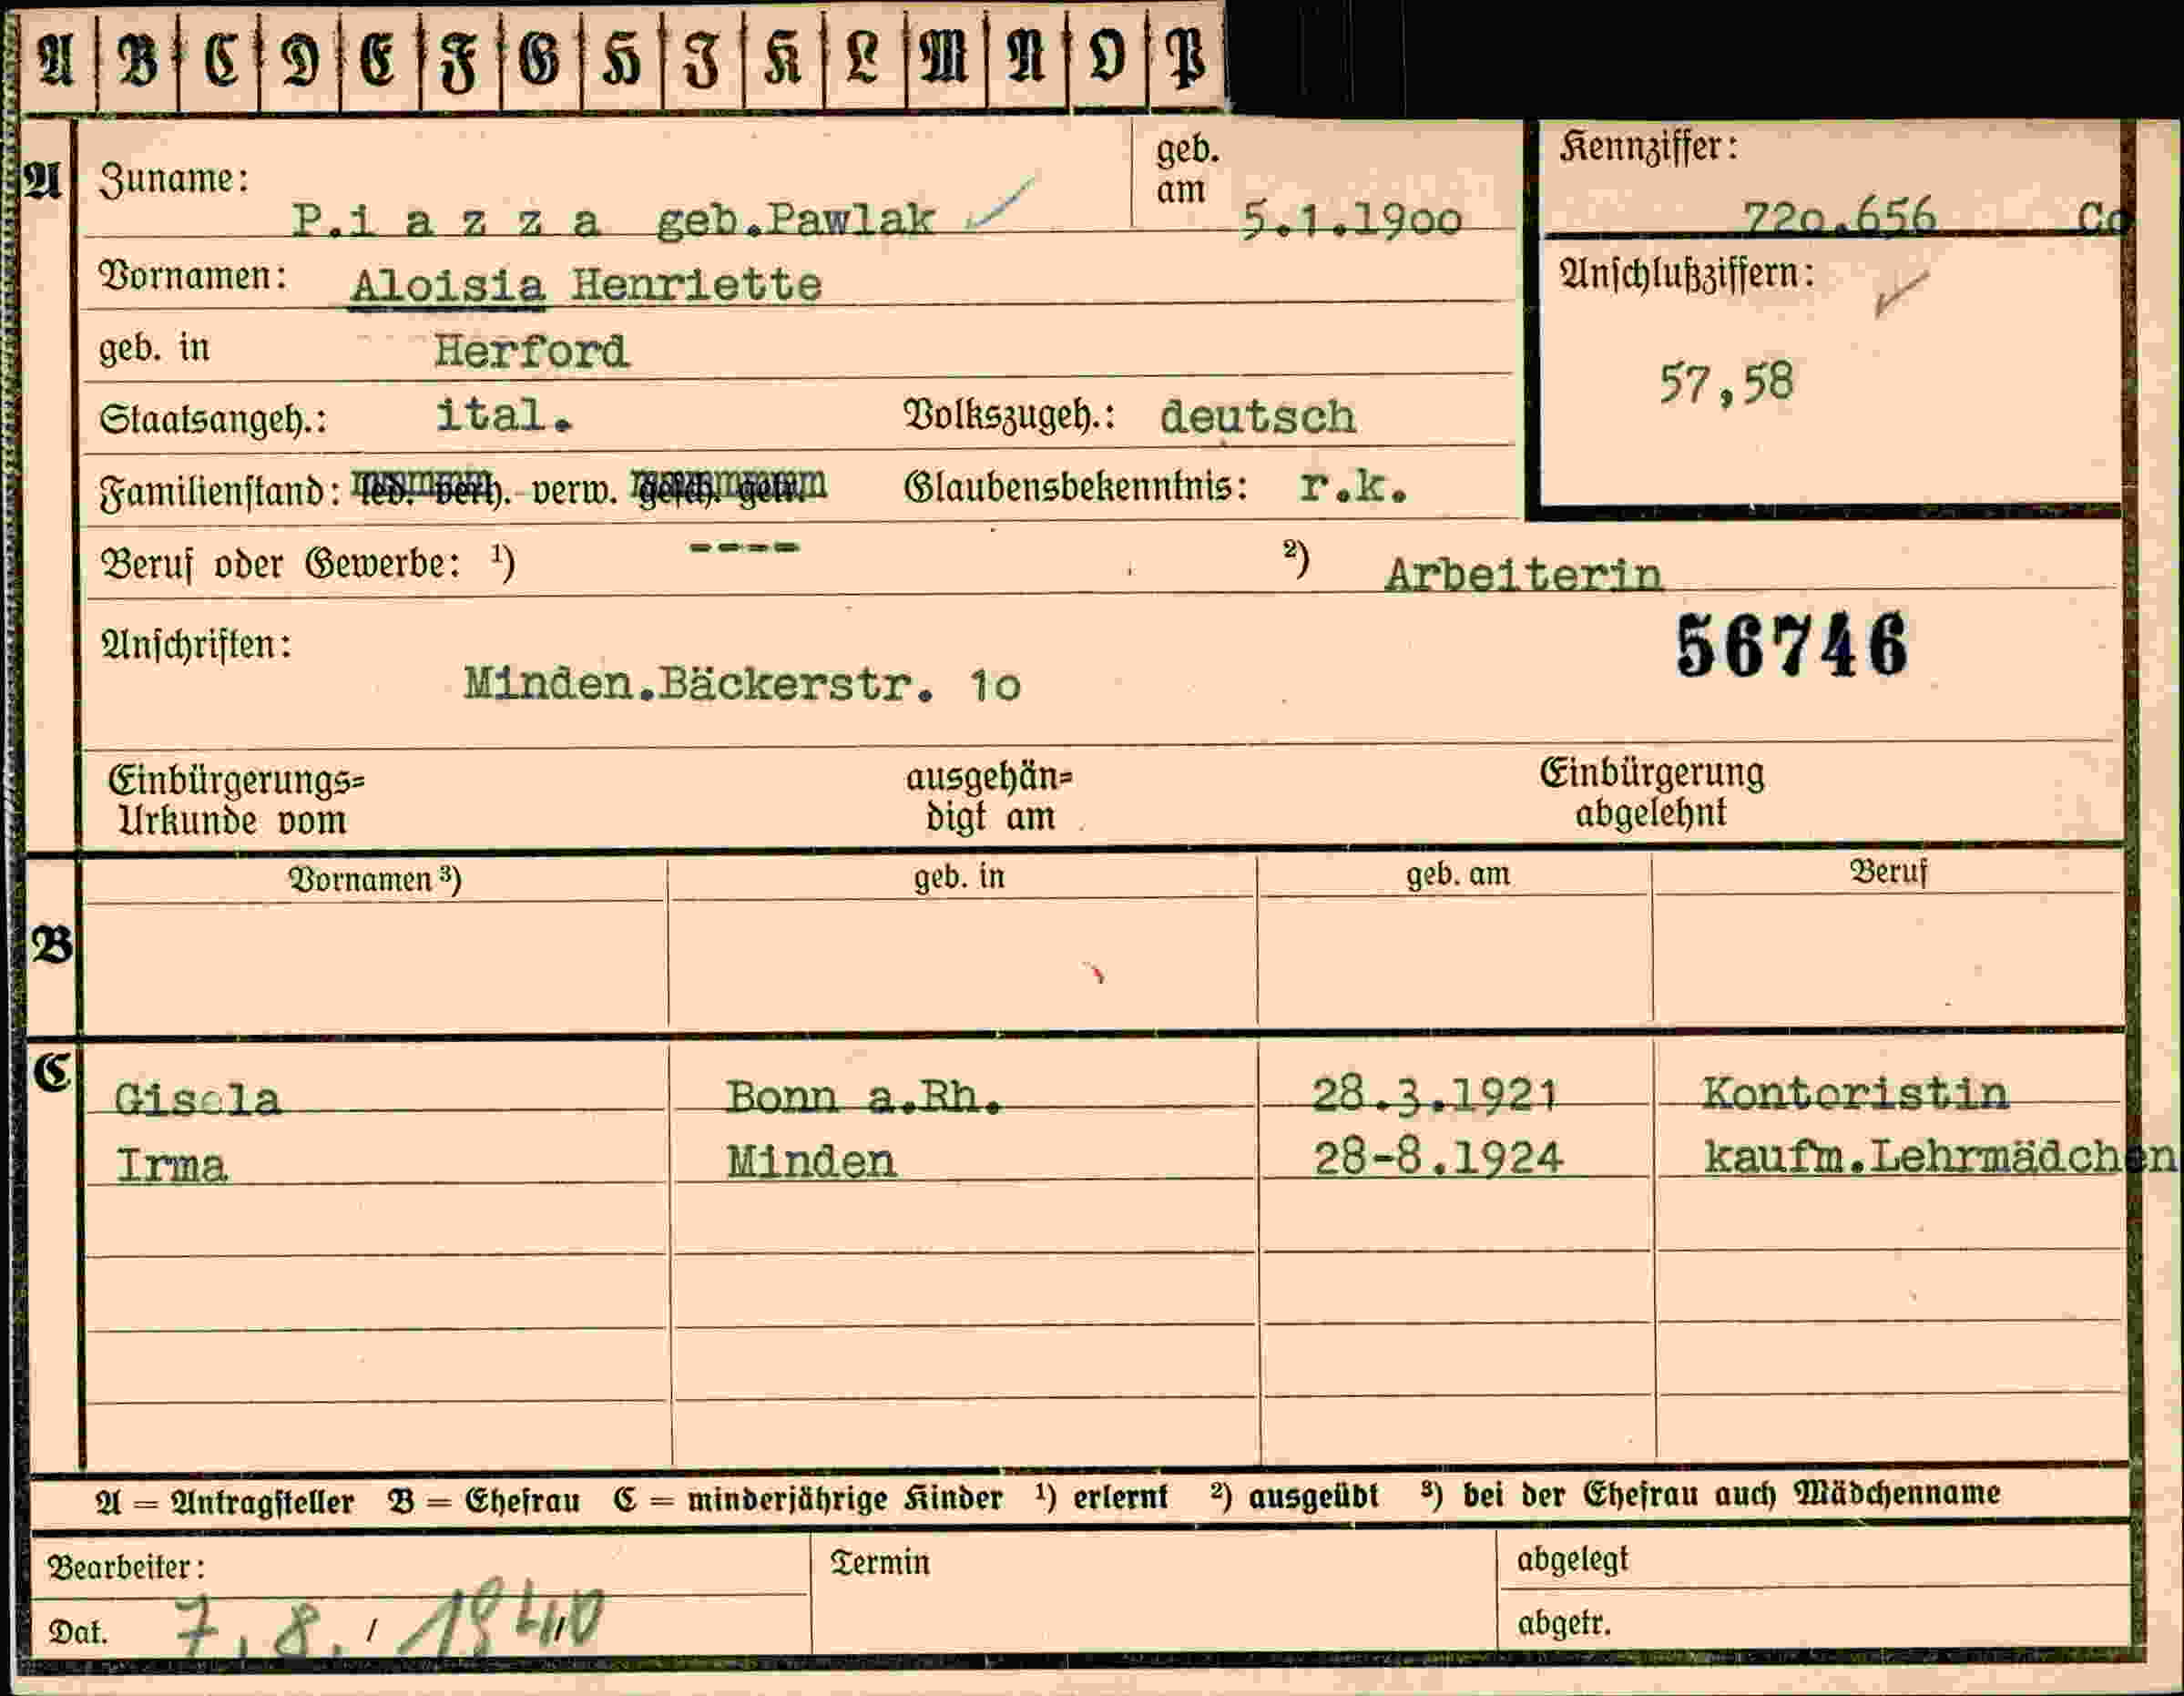 A B C D E F G H J K L M N O P
A Zuname: P.i a z z a geb.Pawlak geb. am 5.1.19oo
Kennziffer: 72o.656 Co
Vornamen: Aloisia Henriette
Anschlußziffern:
57,58
geb. in Herford
Staatsangeh.: ital. Volkszugeh.: deutsch
Familienstand: led. verh. verw. gesch. getr. Glaubensbekenntnis: r.k.
Beruf oder Gewerbe: ¹) ---- ²) Arbeiterin
Anschriften:
56746
Minden.Bäckerstr. 1o
Einbürgerungs= ausgehän= Einbürgerung
Urkunde vom digt am abgelehnt
Vornamen ³) geb. in geb. am Beruf
B
C
Gisela Bonn a.Rh. 28.3.1921 Kontoristin
Irma Minden 28-8.1924 kaufm.Lehrmädchen
A = Antragsteller B = Ehefrau C = minderjährige Kinder ¹) erlernt ²) ausgeübt ³) bei der Ehefrau auch Mädchenname
Bearbeiter: Termin abgelegt
Dat. 7.8./1940 abgetr.